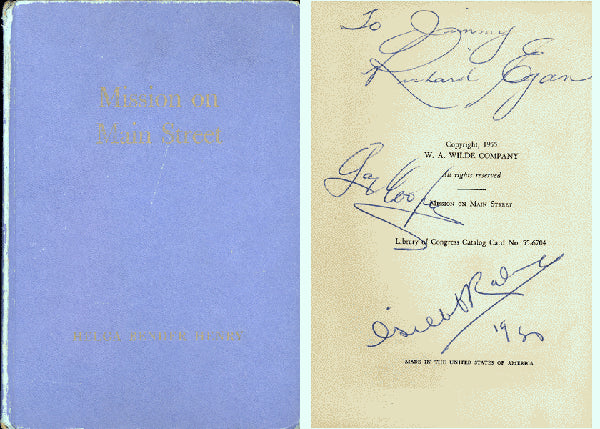 Mission on
Main Street
To Jimmy
Richard Egan
Copyright, 1955
W. A. WILDE COMPANY
All rights reserved
Gary Cooper
MISSION ON MAIN STREET
Library of Congress Catalog Card No. 55-6704
MADE IN THE UNITED STATES OF AMERICA